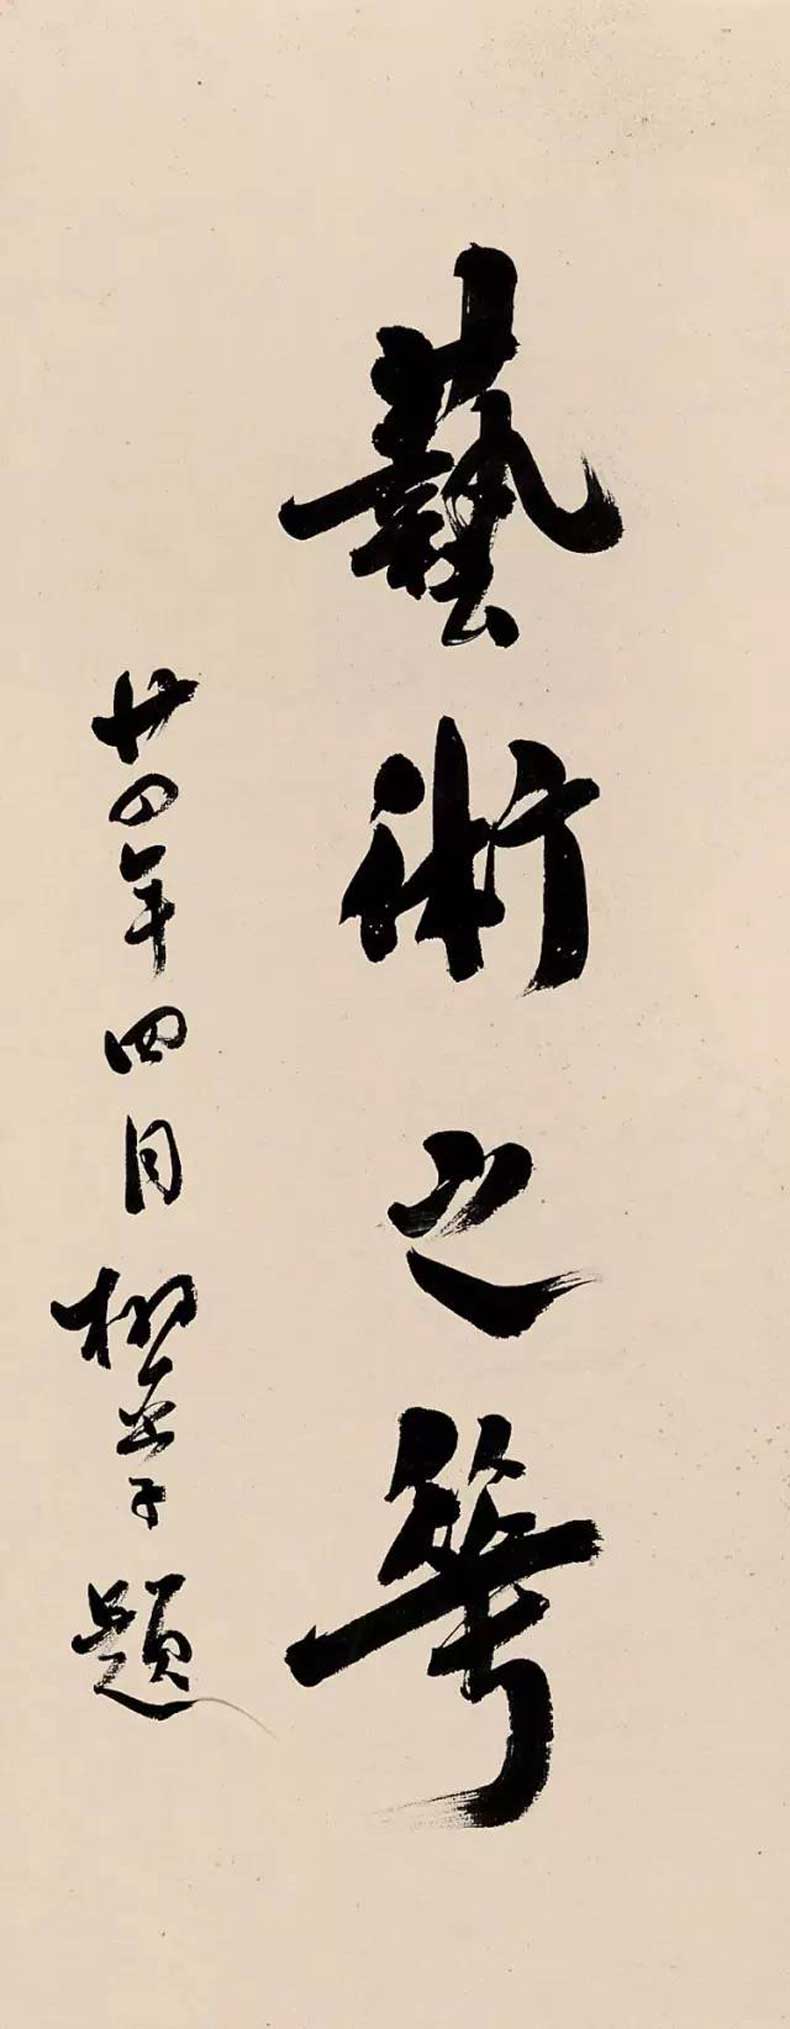 藝術之華
廿四年四月柳亞子題